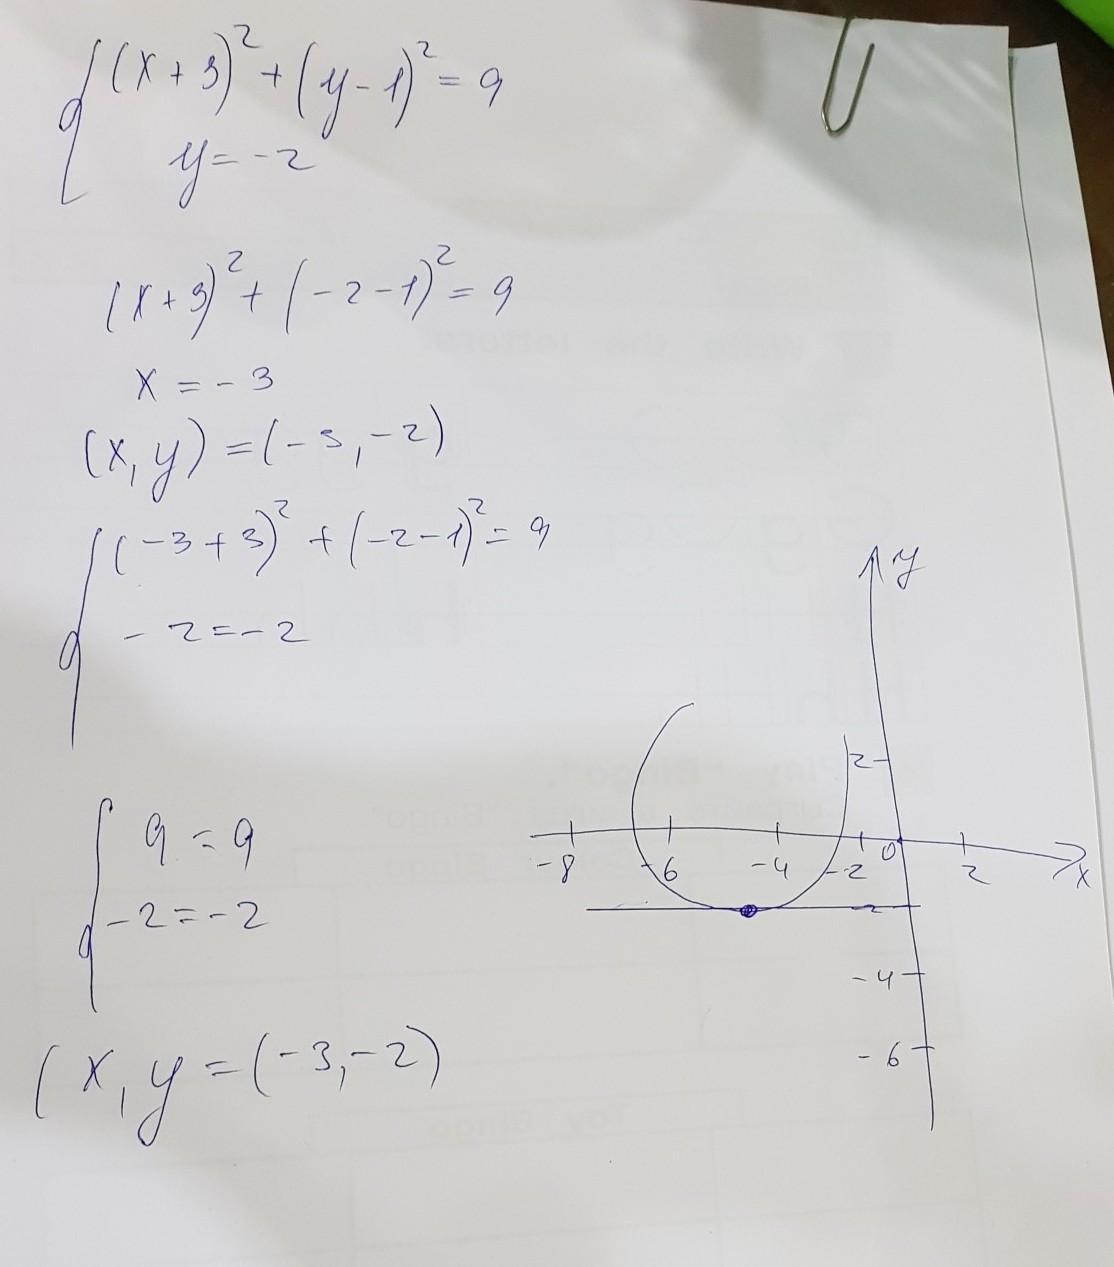 (x+3)² + (y-1)² = 9
y = -2
(x+3)² + (-2-1)² = 9
x = -3
(x, y) = (-3, -2)
(-3+3)² + (-2-1)² = 9
-2 = -2
9 = 9
-2 = -2
(x, y = (-3, -2)
y
2
-8 -6 -4 -2 0 2 x
-2
-4
-6